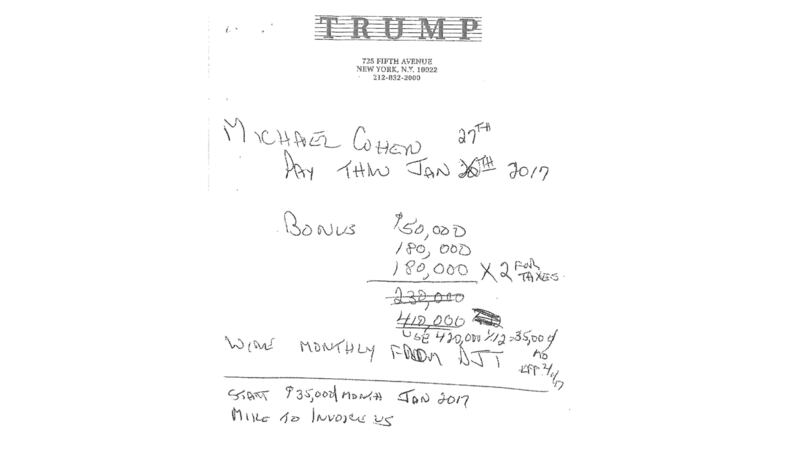 TRUMP
725 FIFTH AVENUE
NEW YORK, N.Y. 10022
212-832-2000
MICHAEL COHEN 27TH
PAY THRU JAN 26TH 2017
BONUS $50,000
180,000
180,000 X 2 FOR TAXES.
230,000
410,000
USE 420,000 1/12 = 35,000/
MO
WIRE MONTHLY FROM DJT
EFF. 2/1/17
START $35,000/MONTH JAN 2017
MIKE TO INVOICE US